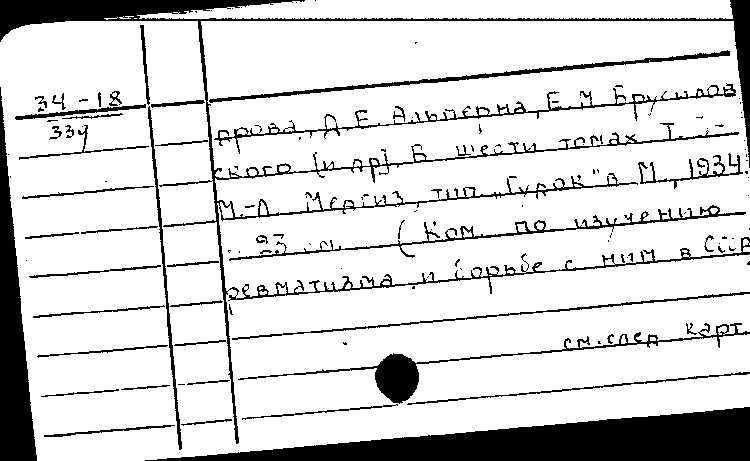 34-18
33у
дрова, Д. Е. Альперна, Е. М. Брусилов
ского [и др]. В шести томах Т.
М.-Л Медгиз, тип „Гудок" в М., 1934.
23 см. (Ком. по изучению
ревматизма и борьбе с ним в СССР
см. след карт.